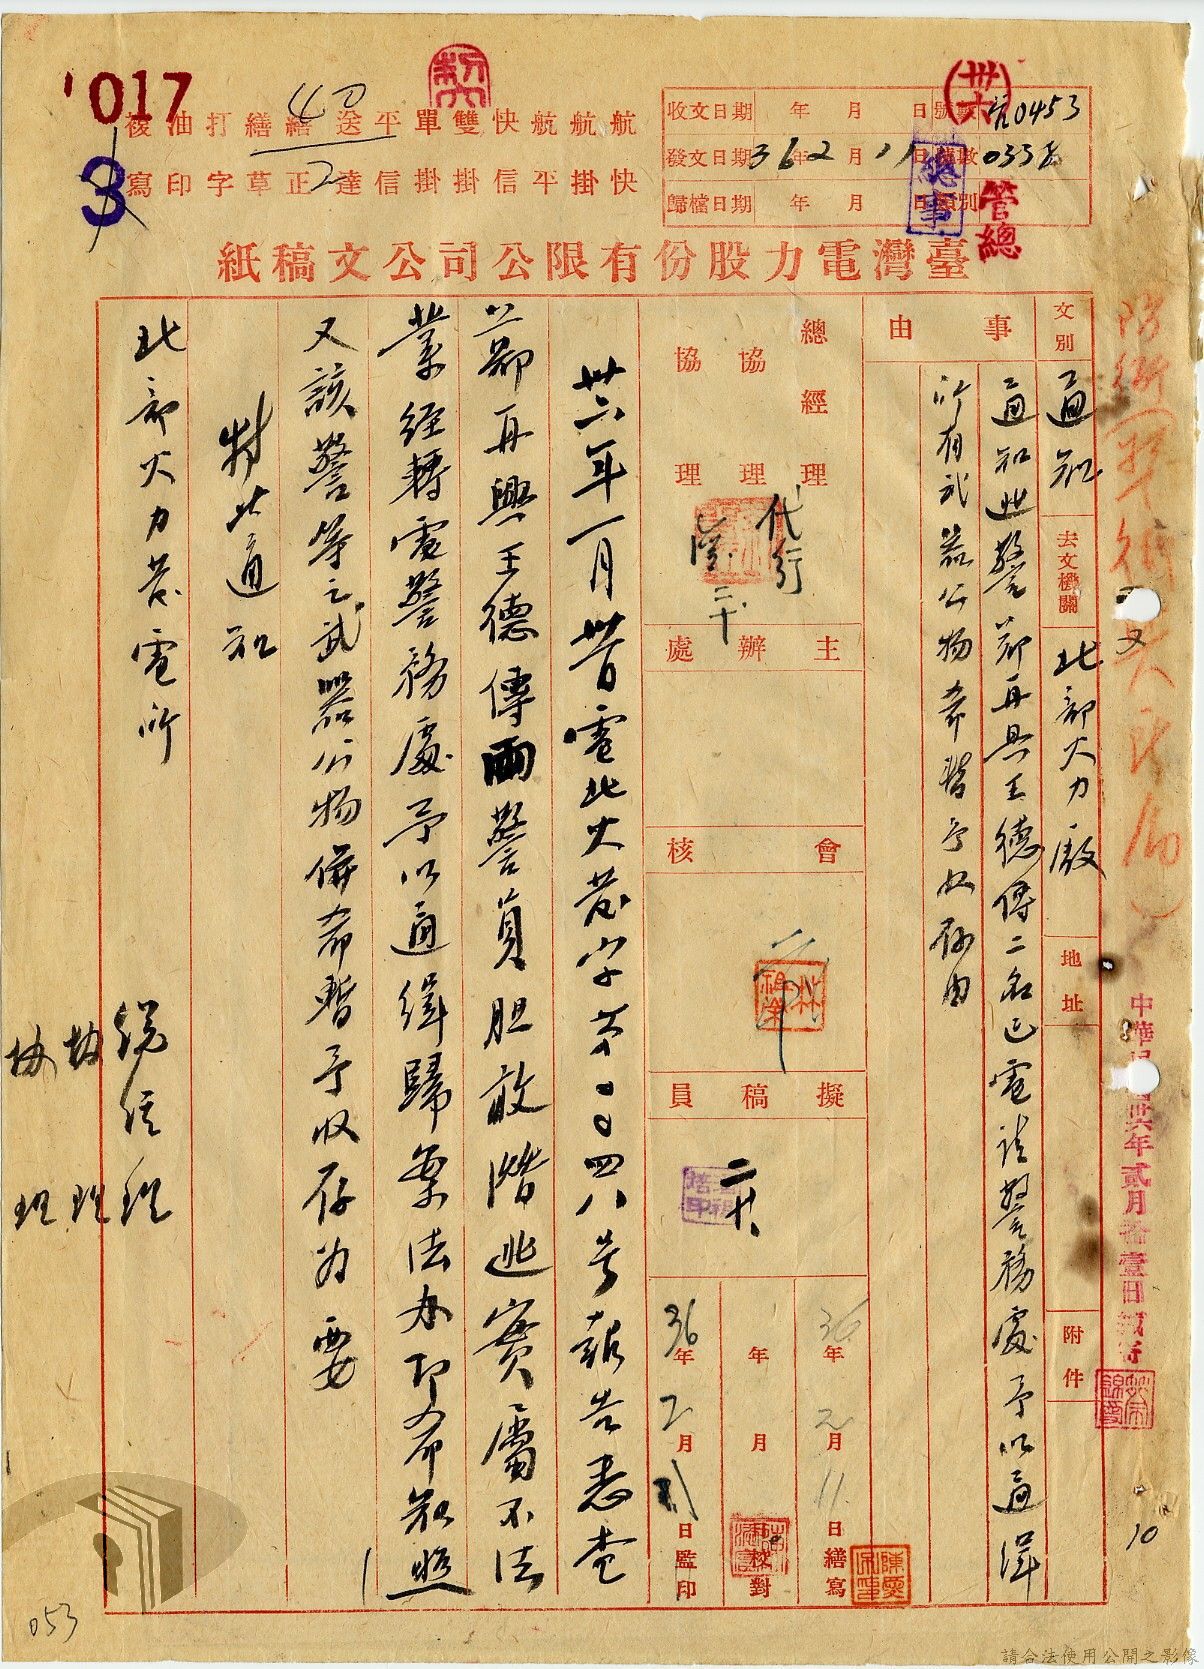 017
3
收文日期 年 月 日 0453
發文日期 36年2月11日
歸檔日期 年 月 日 類別
總事
管總
航航航快雙單平送繕繕打油複
快掛平信掛掛信達正草字印寫
臺灣電力股份有限公司公文稿紙
文別 通知
去文機關 北部火力廠
地址
附件
事由
通知逃警鄒再興王德傳二名已電請警務處予以通緝
所有武器公物希暫予收存由
總經理
協理
協理
代行
主辦處
會核
擬稿員
36年2月11日繕寫
年 月 日校對
36年2月11日監印
中華民國卅六年貳月拾壹日
卅六年一月廿日電北火發字第一〇四八號報告悉查
鄒再興王德傳兩警員胆敢潛逃實屬不法
業經轉電警務處予以通緝歸案法办即希知照
又該警等之武器公物併希暫予收存为要
特此通知
北部火力發電所
總經理
協理
協理
10
053
請合法使用公開之影像